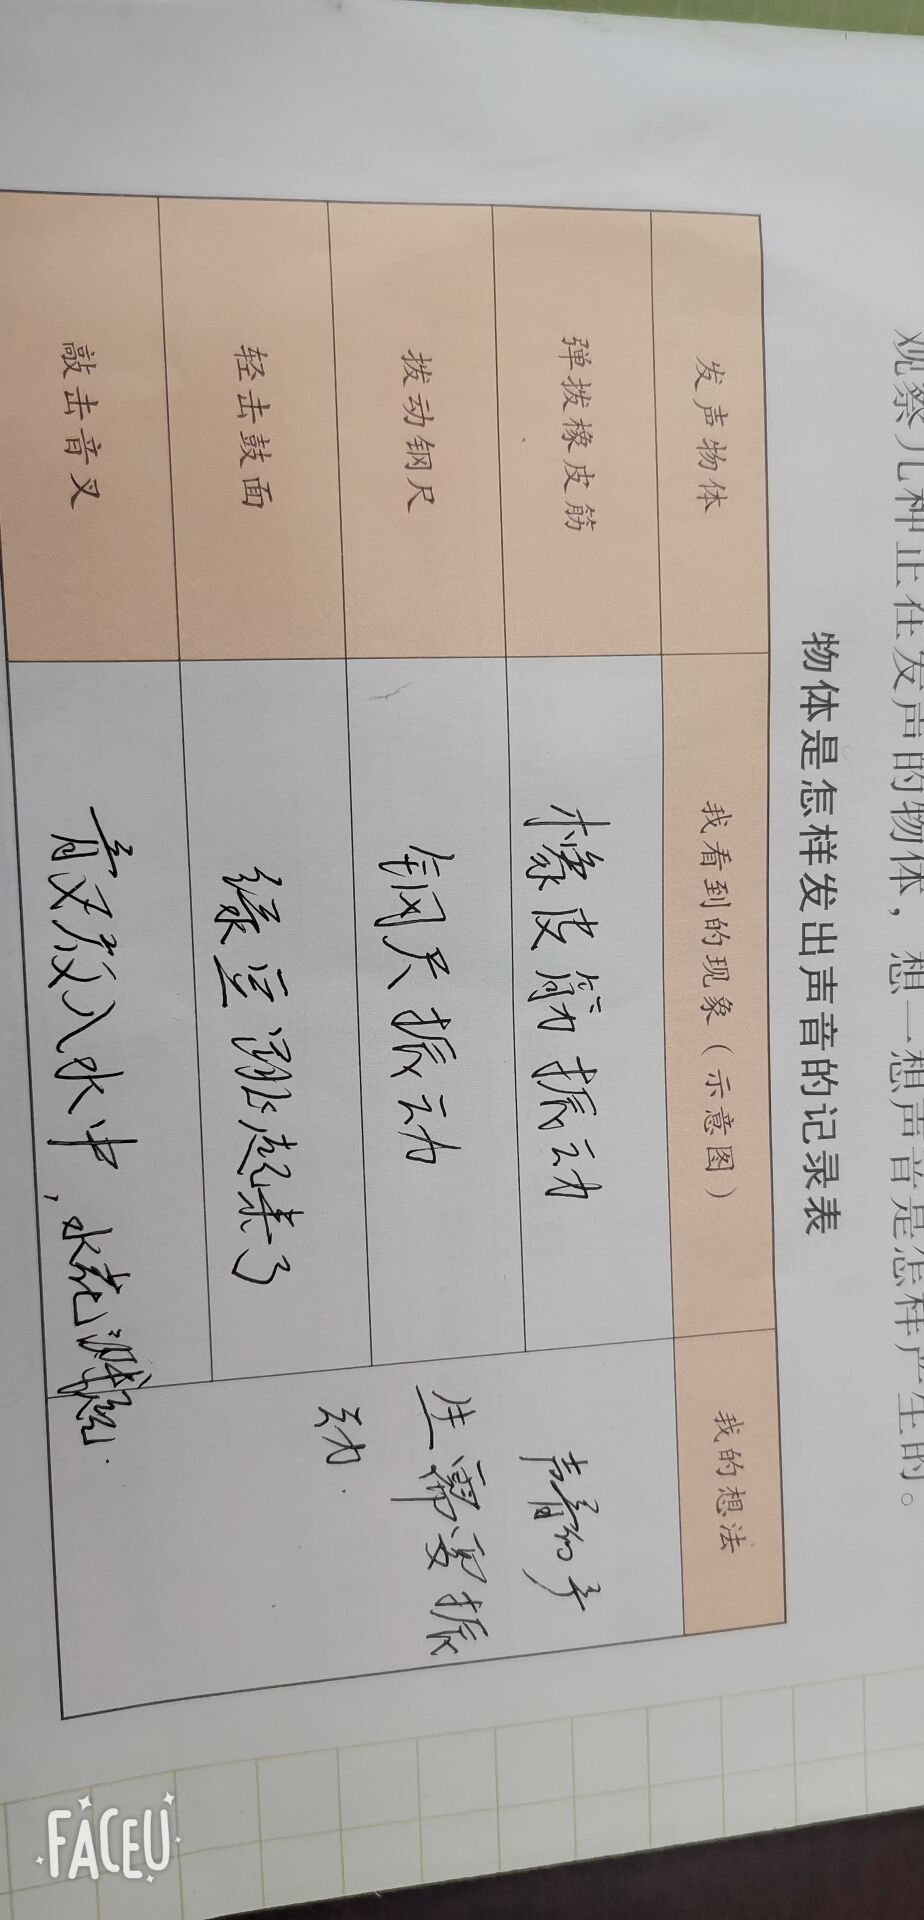 观察几种正在发声的物体，想一想声音是怎样产生的。
物体是怎样发出声音的记录表
发声物体
我看到的现象（示意图）
我的想法
弹拨橡皮筋
橡皮筋振动
声音的产
生需要振
动.
拨动钢尺
钢尺振动
轻击鼓面
绿豆跳起来了
敲击音叉
音叉放入水中，水花溅起.
FACEU